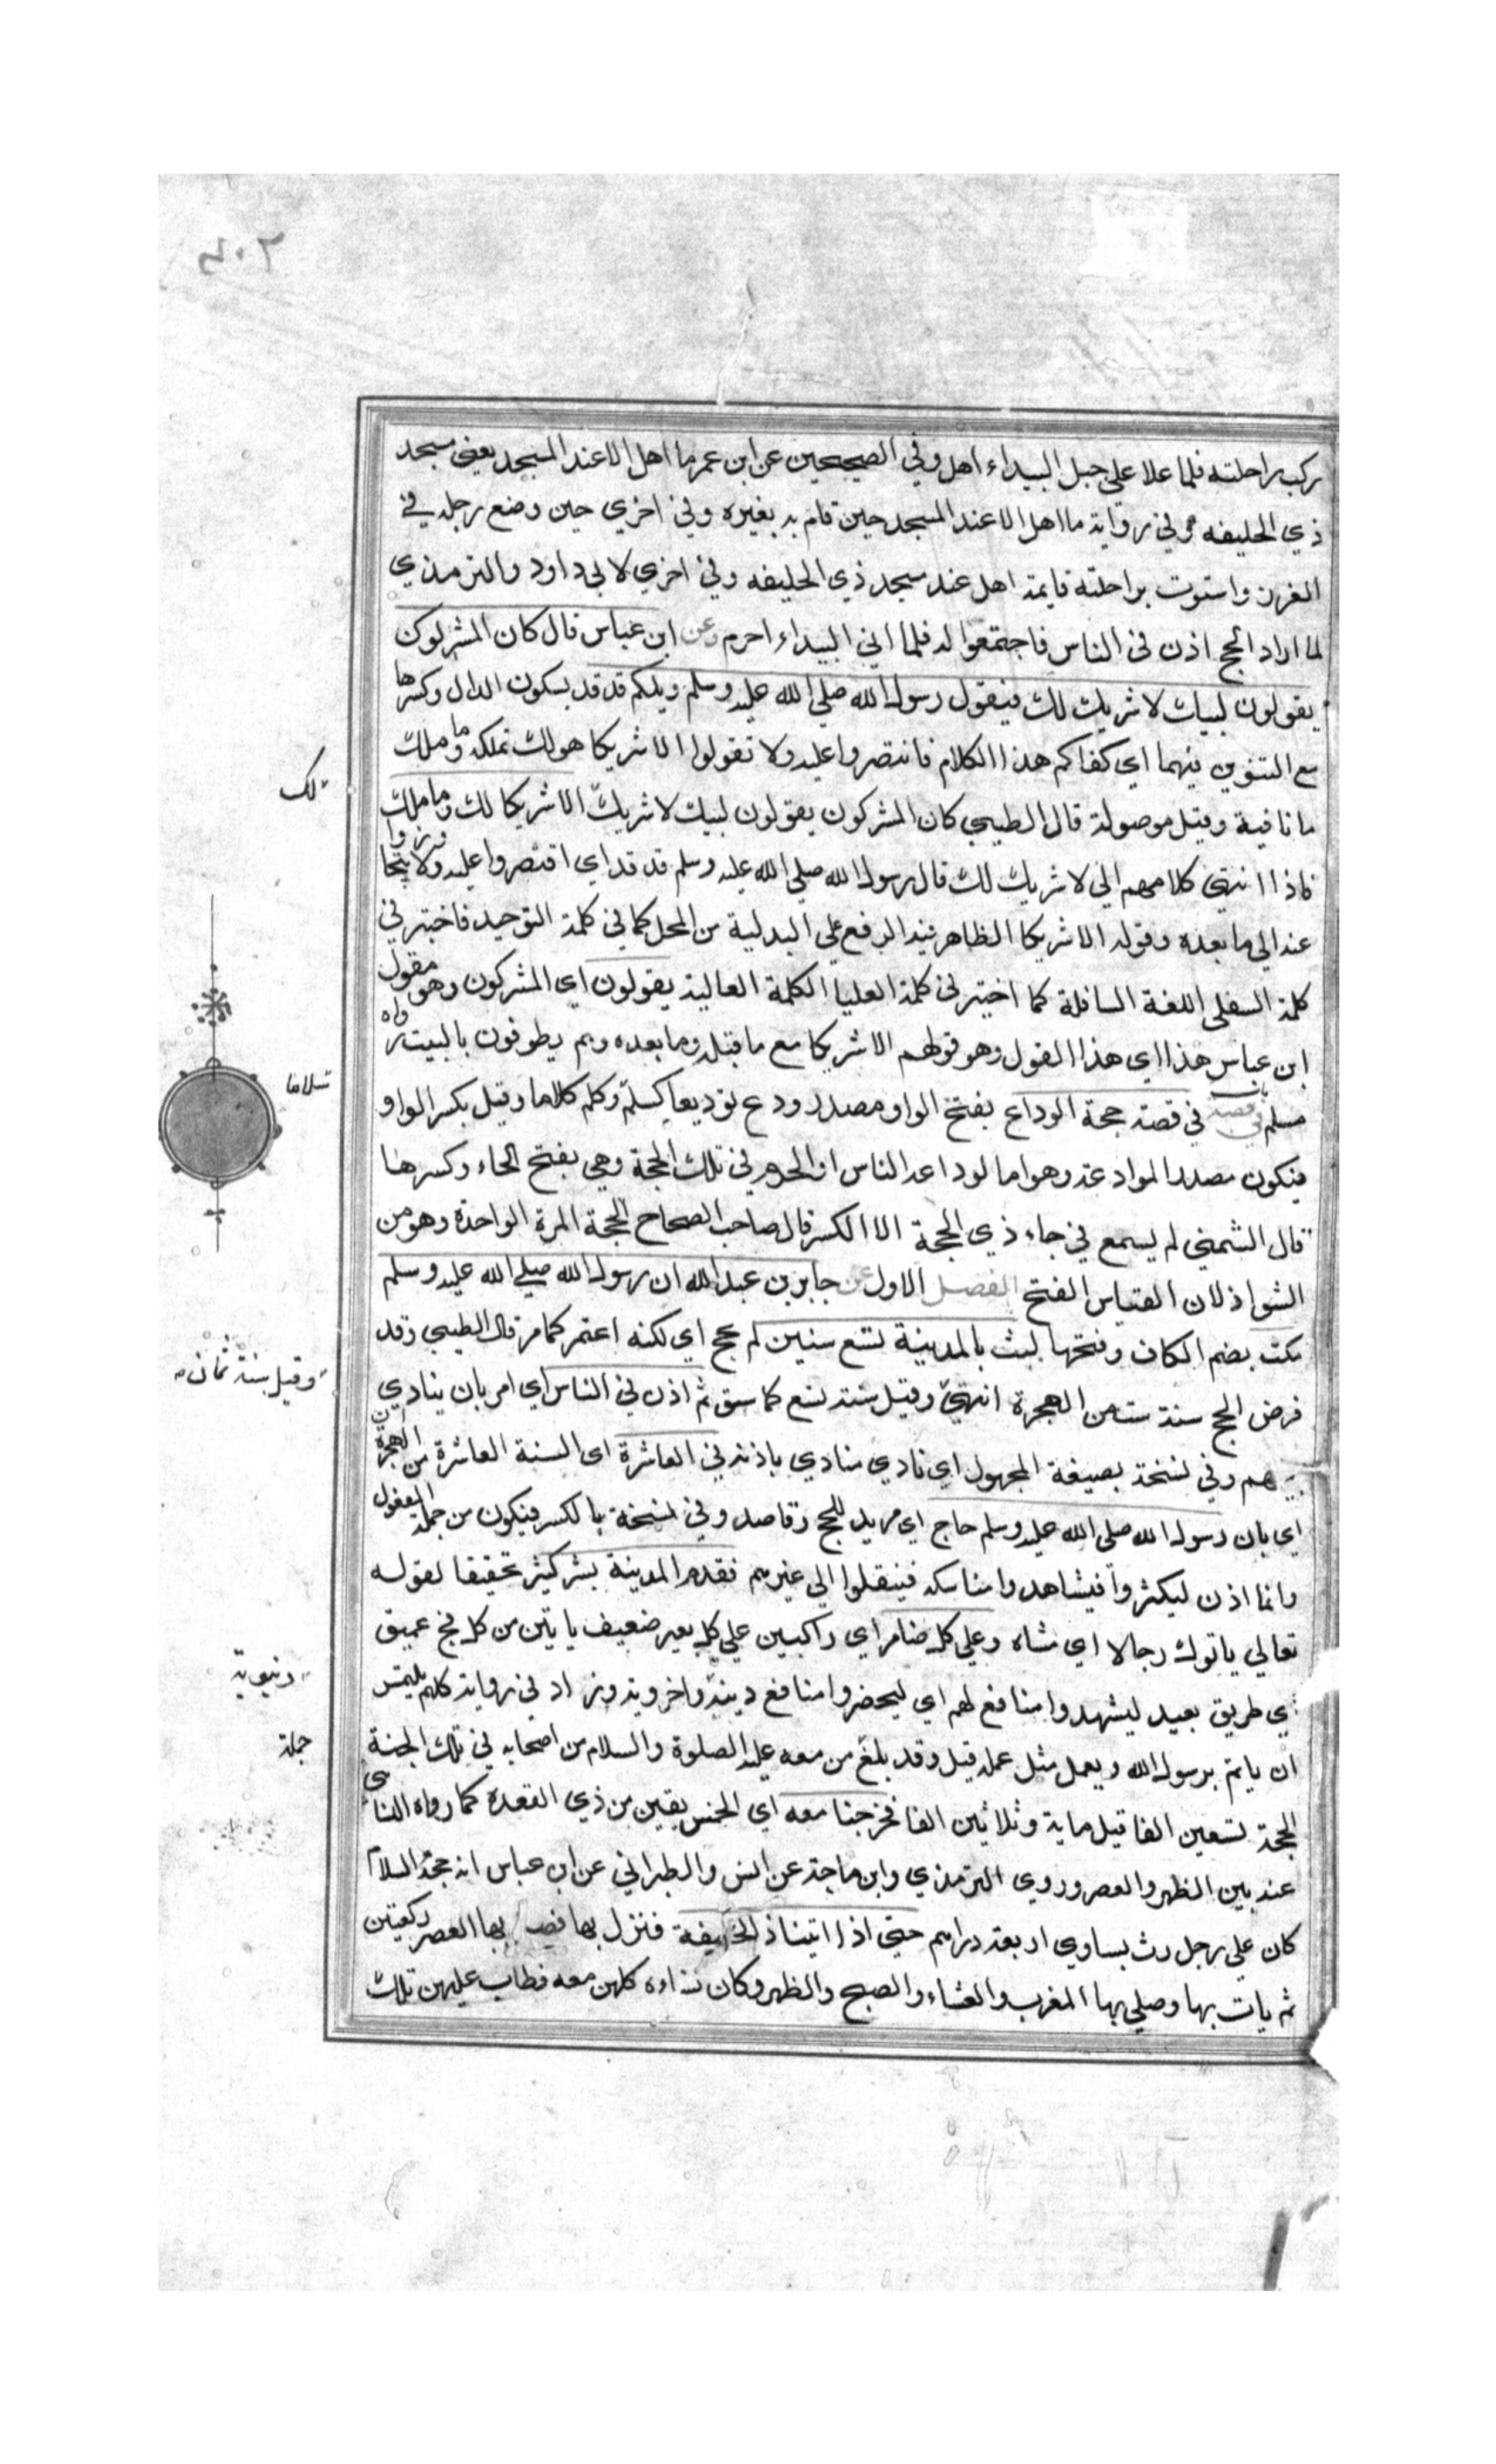 ٤٠٢
ركب راحلته فلما علا على جبل البيداء اهل وفي الصحيحين عن ابن عمر ما اهل الا عند المسجد يعني مسجد
ذي الحليفه وفي رواية ما اهل الا عند المسجد حين قام به بعيره وفي اخري حين وضع رجله في
الغرز واستوت به راحلته قايمة اهل عند مسجد ذي الحليفه وفي اخري لابي داود والترمذي
لما اراد الحج اذن في الناس فاجتمعوا له فلما اتي البيداء احرم وعن ابن عباس قال كان المشركون
يقولون لبيك لا شريك لك فيقول رسول الله صلي الله عليه وسلم ويلكم قد قد بسكون الدال وكسرها
مع التنوين فيهما اي كفاكم هذا الكلام فاقتصروا عليه ولا تقولوا الا شريكا هو لك تملكه وما ملك
لك
ما نافية وقيل موصولة قال الطيبي كان المشركون يقولون لبيك لا شريك الا شريكا لك وما ملك
فاذا انتهي كلامهم الي لا شريك لك قال رسول الله صلي الله عليه وسلم قد قد اي اقتصروا عليه ولا يتجاوزوا
عنه الي ما بعده وقوله الا شريكا الظاهر فيه الرفع علي البدلية من المحل كما في كلمة التوحيد فاختير في
كلمة السفلى اللغة السافلة كما اختير في كلمة العليا الكلمة العالية يقولون اي المشركون وهو مقول
ابن عباس هذا اي هذا القول وهو قولهم الا شريكا مع ما قبله وما بعده وهم يطوفون بالبيت رواه
مسلم في قصة حجة الوداع بفتح الواو مصدر ودع توديعا كسلم وكلم كلاما وقيل بكسر الواو
سلاما
فيكون مصدر الموادعة وهو اما لوداعه الناس او الحرم في تلك الحجة وهي بفتح الحاء وكسرها
قال الشمني لم يسمع في حاء ذي الحجة الا الكسر قال صاحب الصحاح الحجة المرة الواحدة وهو من
الشواذ لان القياس الفتح الفصل الاول عن جابر بن عبد الله ان رسول الله صلي الله عليه وسلم
مكث بضم الكاف وفتحها لبث بالمدينة تسع سنين لم يحج اي لكنه اعتمر كما مر قال الطيبي وقد
فرض الحج سنة ست من الهجرة انتهي وقيل سنة تسع كما سبق ثم اذن في الناس اي امر بان ينادي
وقيل سنة ثمان
بينهم وفي نسخة بصيغة المجهول اي نادي منادي باذنه في العاشرة اى السنة العاشرة من الهجرة
اي بان رسول الله صلي الله عليه وسلم حاج اي مريد للحج وقاصد وفي نسخة بالكسر فيكون من جملة المقول
وانما اذن ليكثروا فيشاهدوا مناسكه فينقلوا الي غيرهم فقدم المدينة بشر كثير تحقيقا لقوله
تعالي ياتوك رجالا اي مشاة وعلي كل ضامر اي راكبين علي كل بعير ضعيف ياتين من كل فج عميق
اي طريق بعيد ليشهدوا منافع لهم اي ليحضروا منافع دينية واخروية وزاد في رواية كلهم يلتمس
دنيوية
ان ياتم برسول الله ويعمل مثل عمله قيل وقد بلغ من معه عليه الصلوة والسلام من اصحابه في تلك الجنة
جملة
الحجة تسعين الفا قيل ماية وثلاثين الفا فخرجنا معه اي لخمس بقين من ذي القعدة كما رواه النسائي
عنه بين الظهر والعصر وروي الترمذي وابن ماجة عن انس والطبراني عن ابن عباس انه حجه السلام
كان علي رجل رث يساوي اربعة دراهم حتي اذا اتينا ذا الحليفة فنزل بها فصلى بها العصر ركعتين
ثم بات بها وصلي بها المغرب والعشاء والصبح والظهر وكان نساءه كلهن معه فطاف عليهن تلك